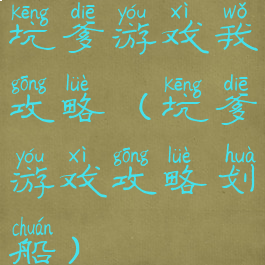 kēng diē yóu xì wǒ
坑爹游戏我
gōng lüè kēng diē
攻略（坑爹
yóu xì gōng lüè huà
游戏攻略划
chuán
船）